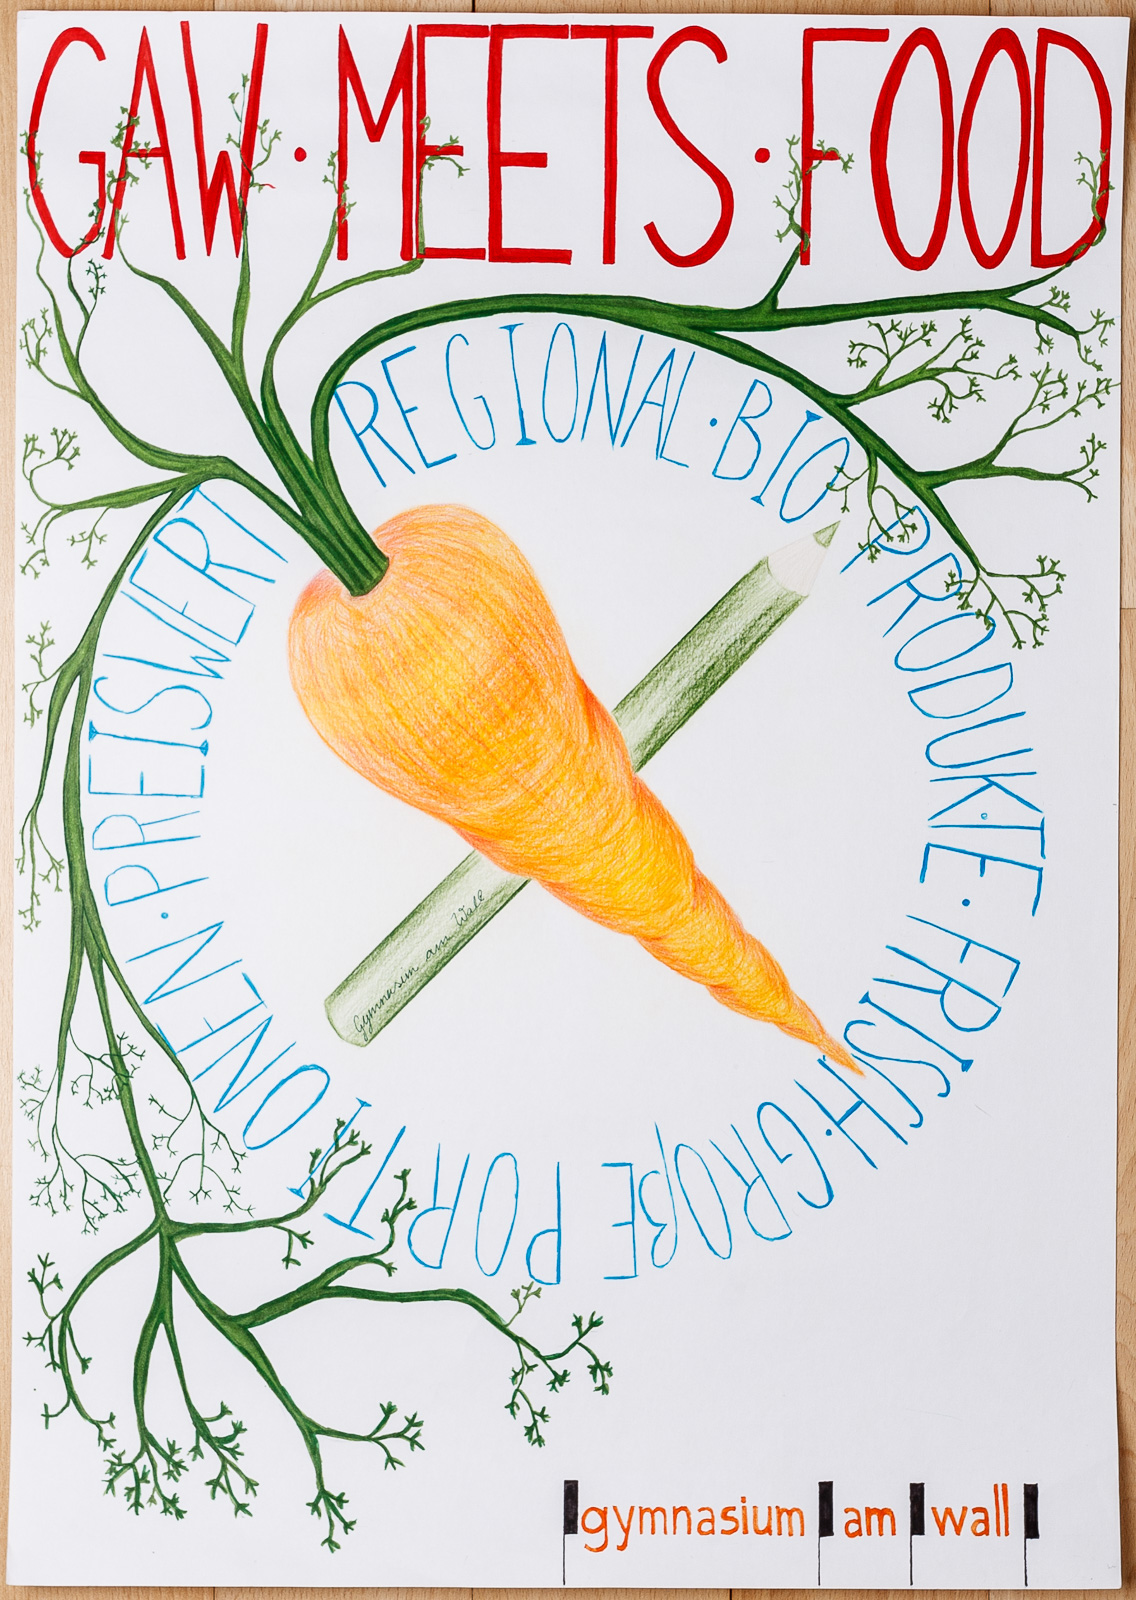 GAW · MEETS · FOOD
REGIONAL · BIO PRODUKTE · FRISCH · GROßE PORTIONEN · PREISWERT
Gymnasium am Wall
gymnasium am wall